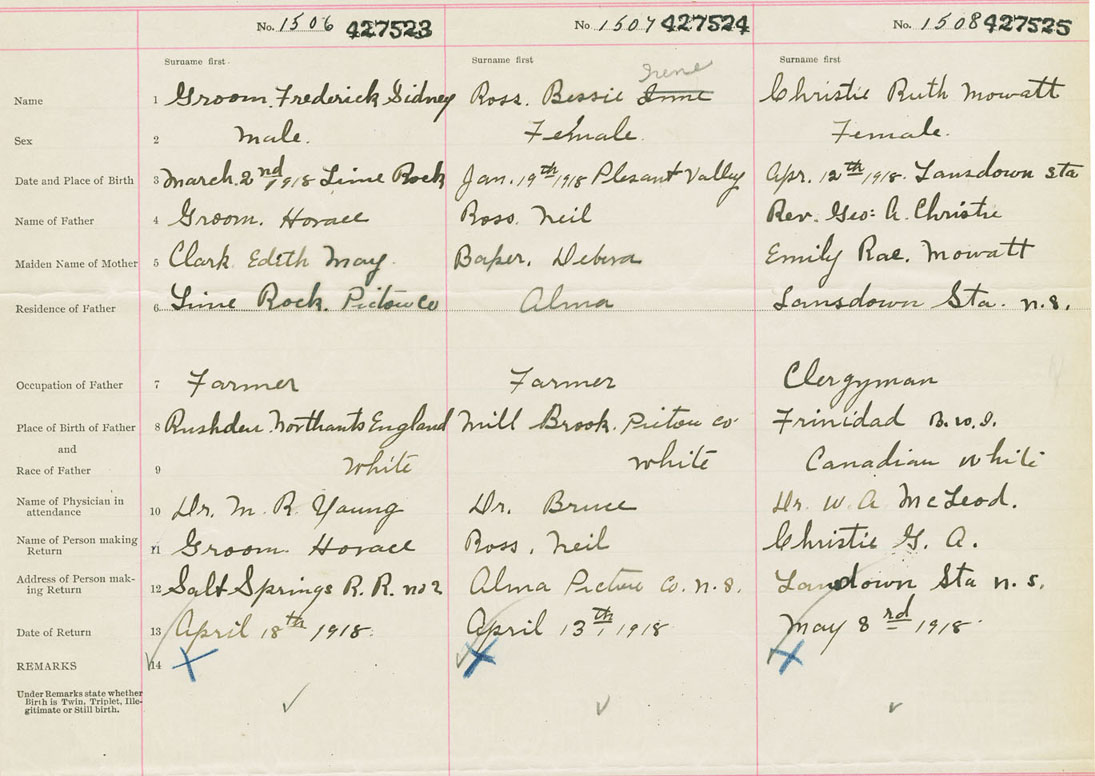 No. 1506 427523 No. 1507 427524 No. 1508 427525
Surname first. Surname first Surname first
Irene
Name 1 Groom, Frederick Sidney Ross. Bessie Christie Ruth Mowatt
Sex 2 Male. Female. Female.
Date and Place of Birth 3 March. 2nd 1918 Lime Rock Jan. 19th 1918 Plesant Valley Apr. 12th 1918. Lansdown Sta
Name of Father 4 Groom. Horace Ross. Neil Rev. Geo: A. Christie
Maiden Name of Mother 5 Clark Edith May. Debera Emily Rae. Mowatt
Residence of Father 6 Lime Rock. Pictou Co Alma Lansdown Sta. N.S.
Occupation of Father 7 Farmer Farmer Clergyman
Place of Birth of Father 8 Rushden Northants England Mill Brook. Pictou Co Trinidad B.W.I.
and
Race of Father 9 White White Canadian White
Name of Physician in
attendance 10 Dr. M. R. Young Dr. Bruce Dr. W. A McLeod.
Name of Person making
Return 11 Groom. Horace Ross, Neil Christie G. A.
Address of Person mak-
ing Return 12 Salt Springs R. R. No 2 Alma Pictou Co. N.S. Lansdown Sta N.S.
Date of Return 13 April 18th 1918. April 13th, 1918 May 8rd 1918.
REMARKS 14
Under Remarks state whether
Birth is Twin, Triplet, Ille-
gitimate or Still birth.